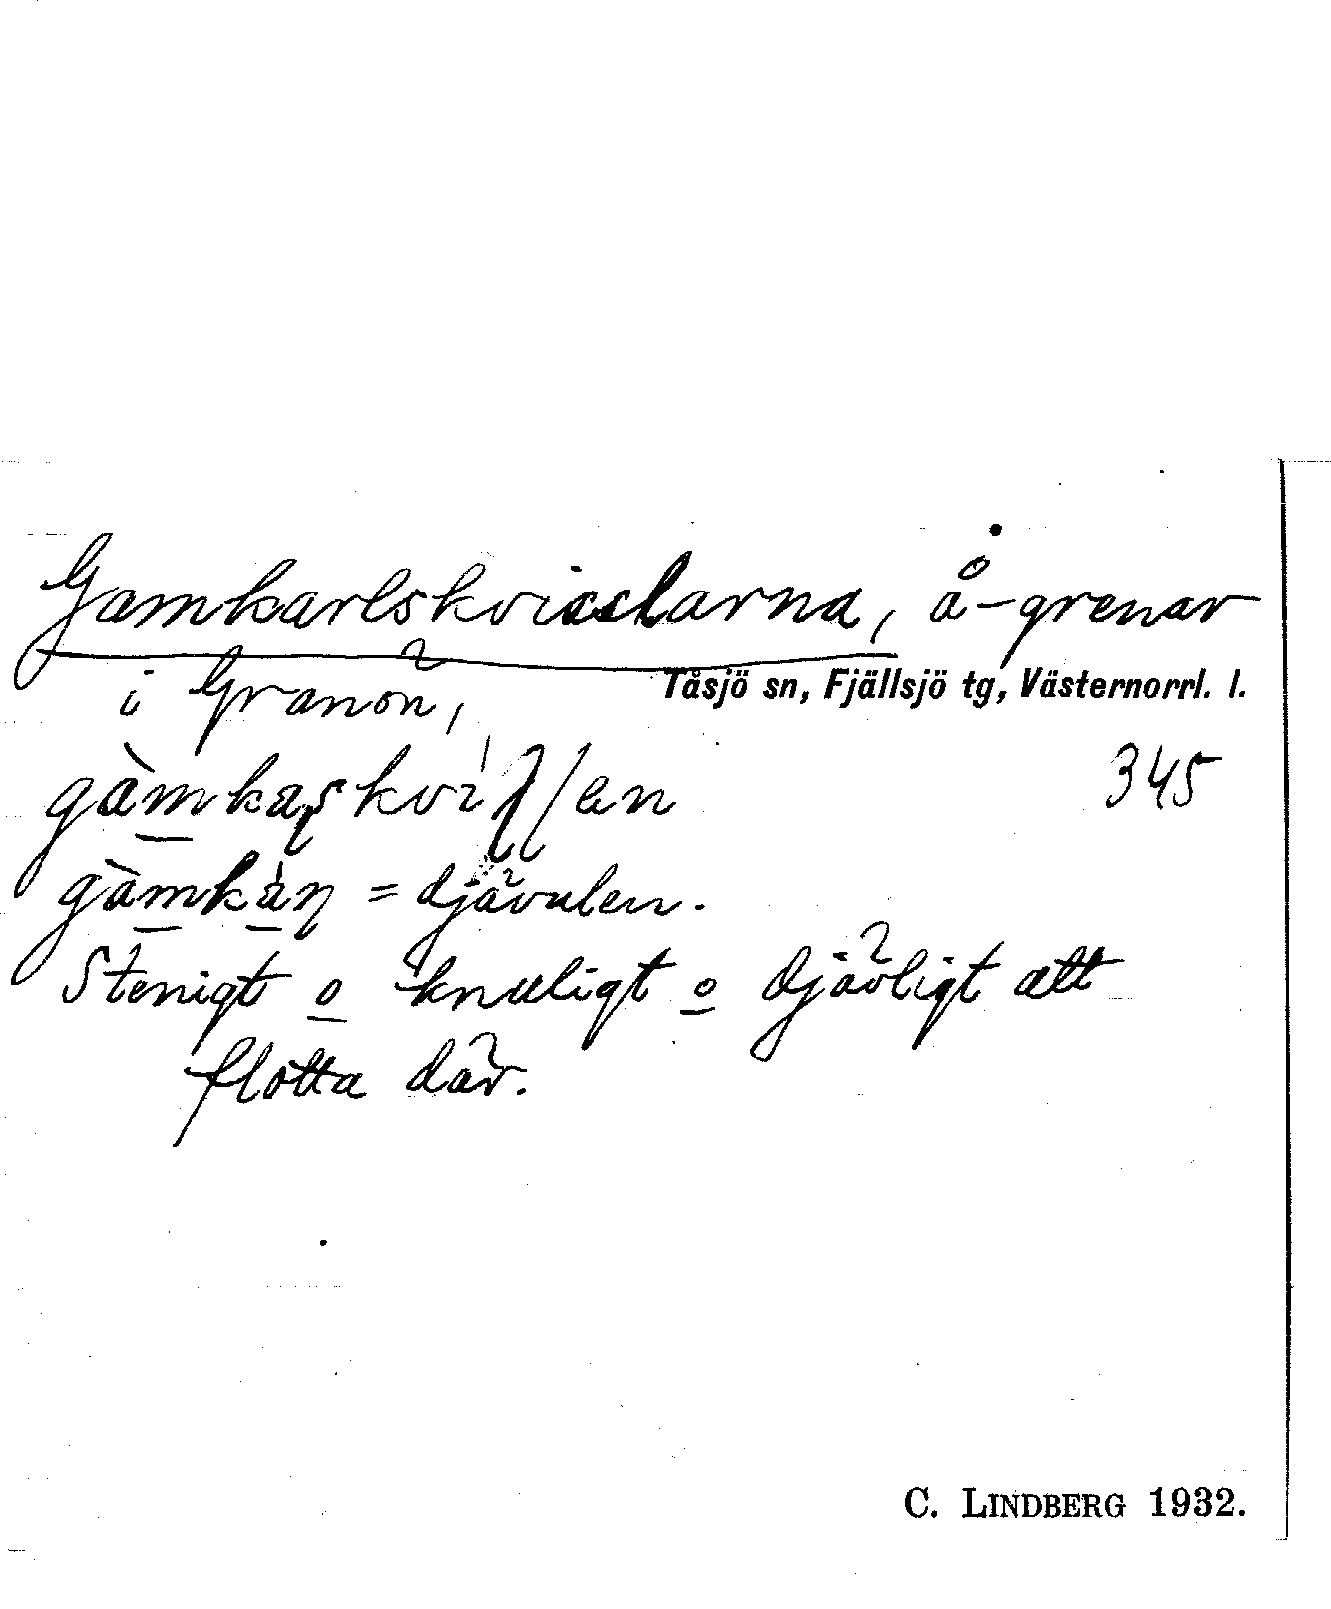 Gamkarlskvisslarna, å-grenar
i Granön, Tåsjö sn, Fjällsjö tg, Västernorrl. l.
345
= djävulen.
Stenigt o knuligt o djävligt att
flotta där.
C. LINDBERG 1932.